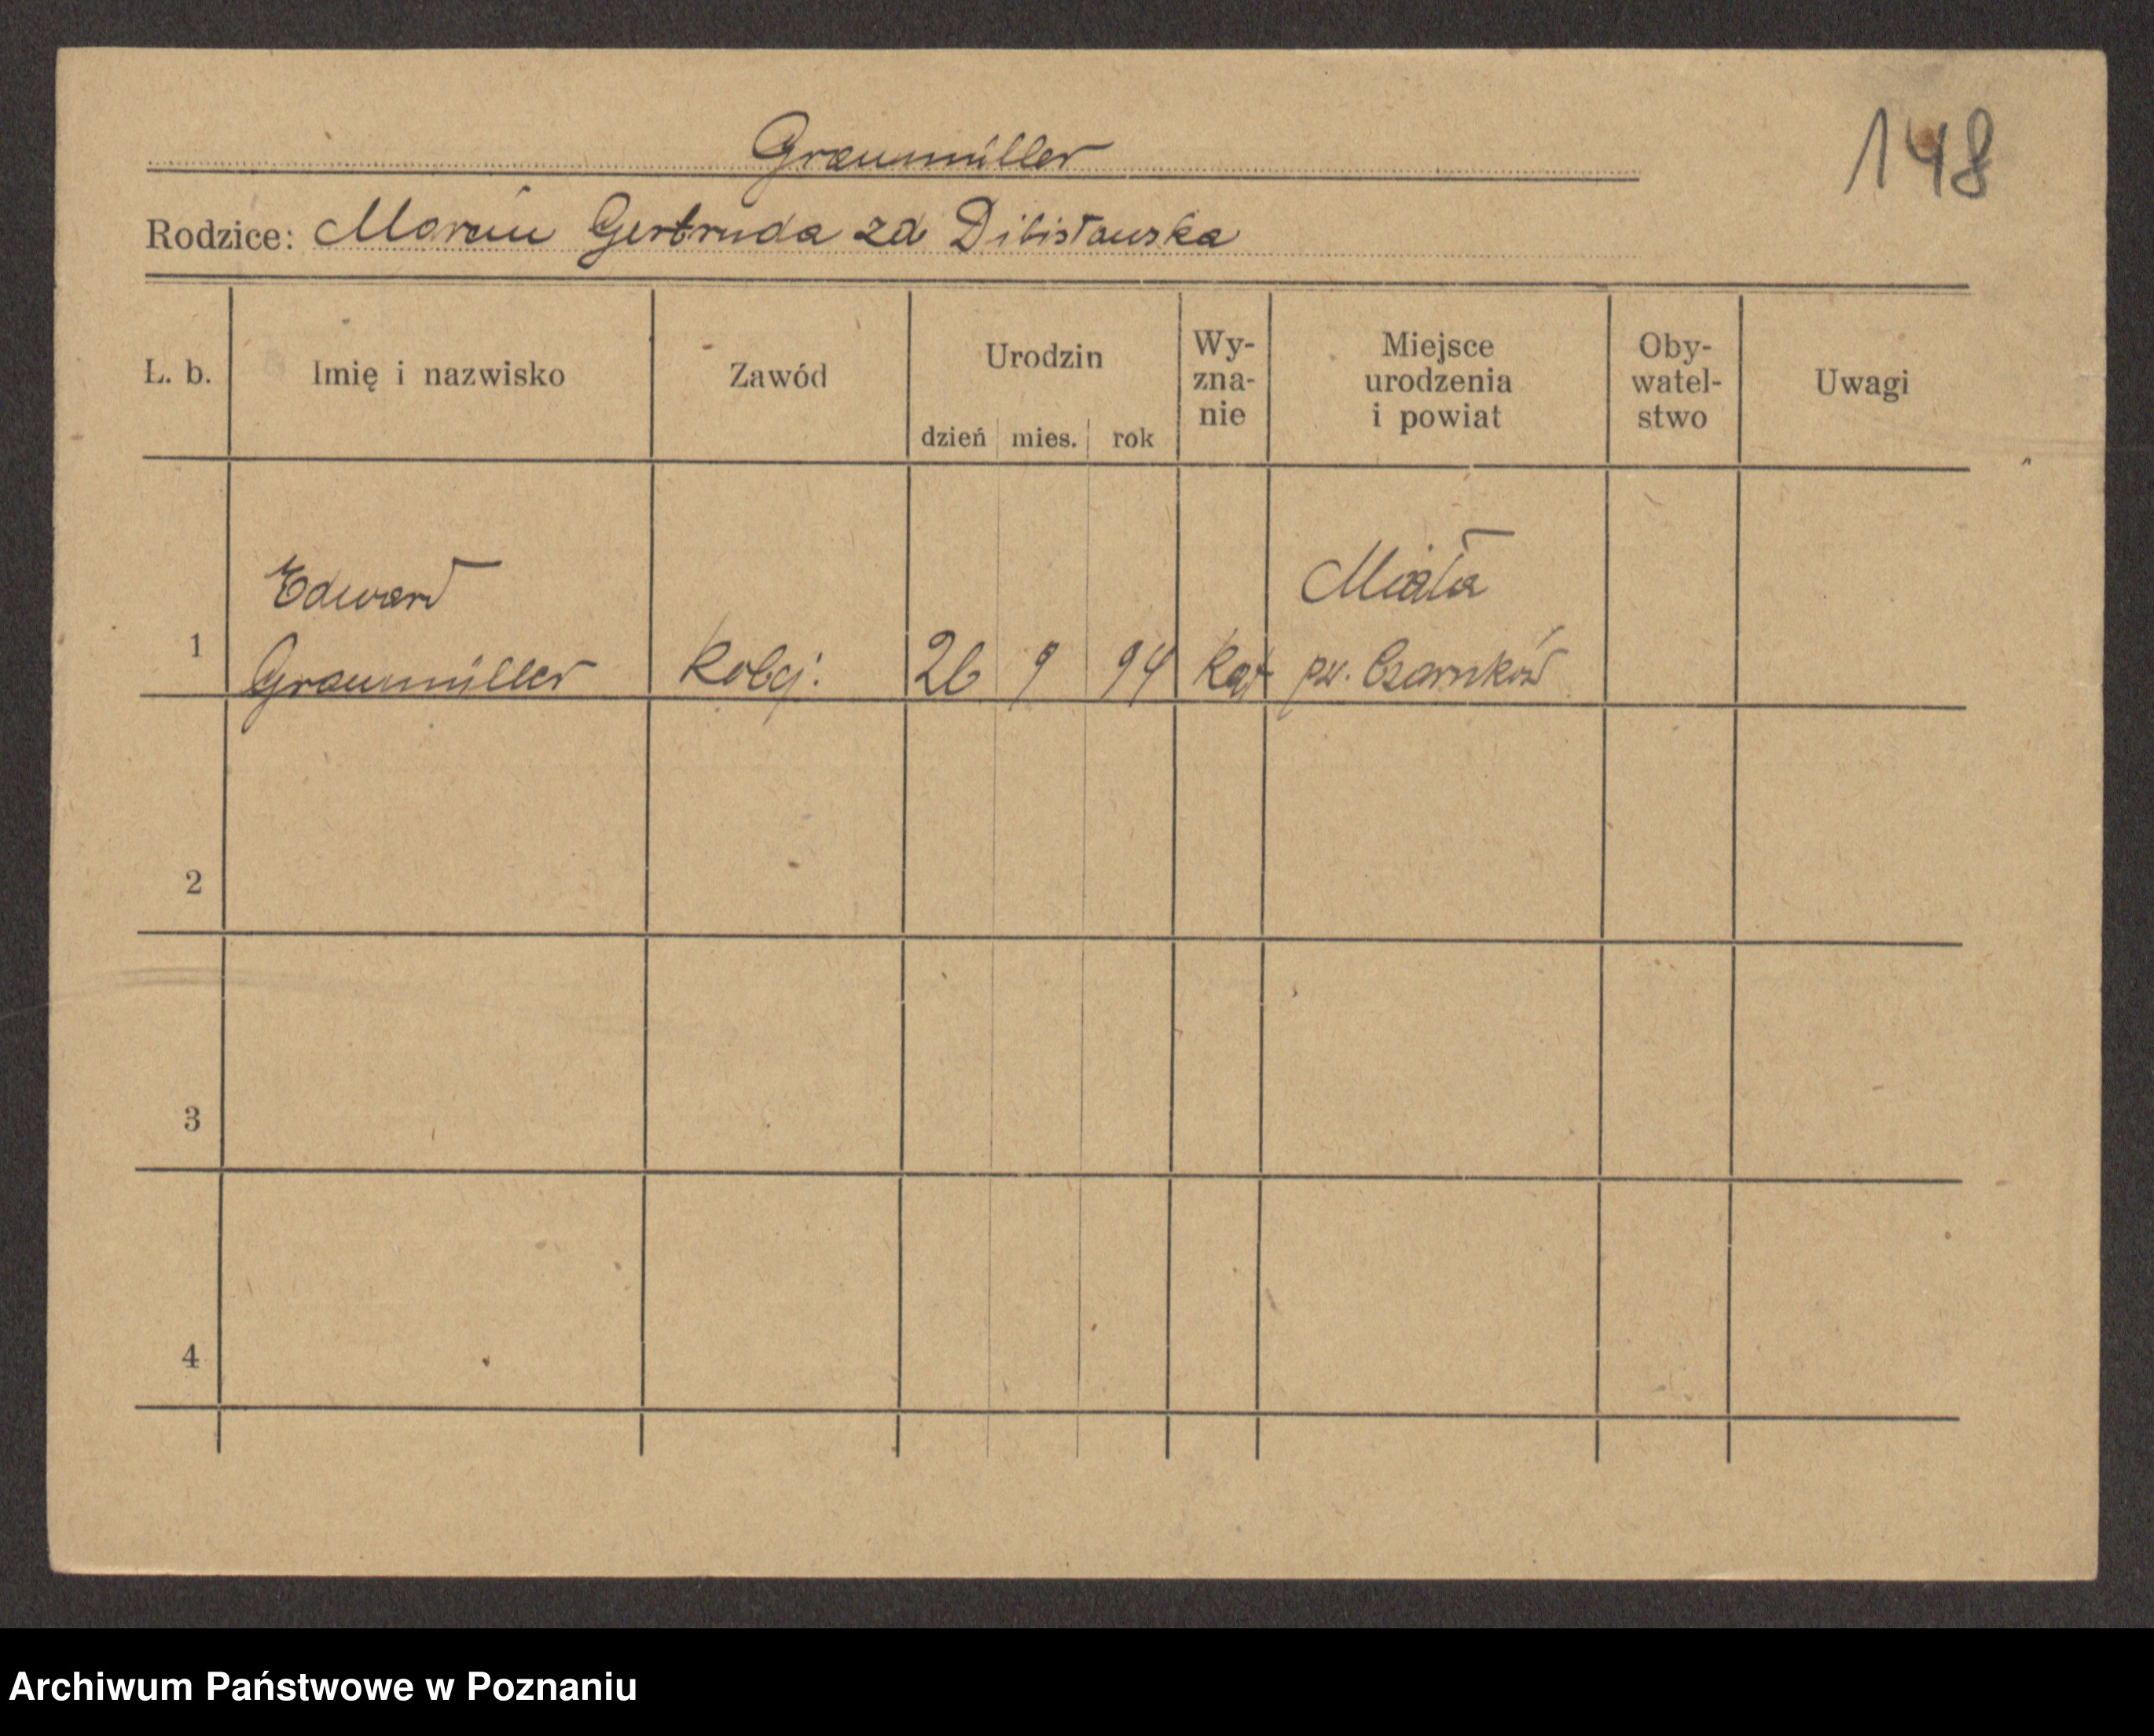 Graumüller
148
Rodzice: Marcin Gertruda zd Dibisławska
L. b. Imię i nazwisko Zawód Urodzin dzień mies. rok Wy-zna-nie Miejsce urodzenia i powiat Oby-watel-stwo Uwagi
Edward Miała
1 Graumüller 26 9 94 kat pw. Czarnków
2
3
4
Archiwum Państwowe w Poznaniu